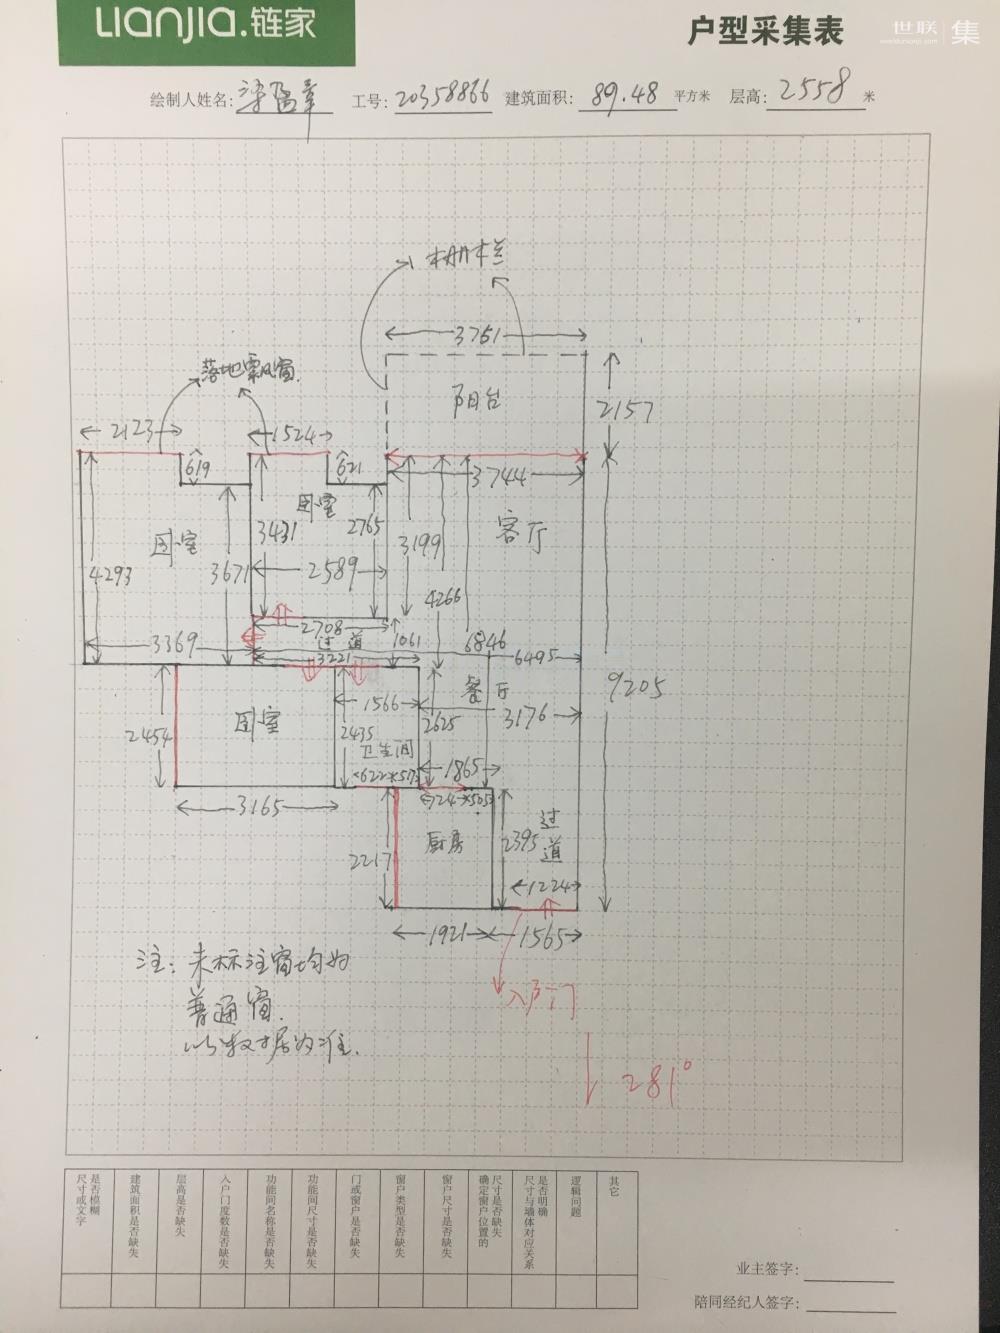 LIANJIA.链家
户型采集表
世联 集
绘制人姓名: 工号: 20358866 建筑面积: 89.48 平方米 层高: 2558 米
栅栏
3751
落地飘窗
阳台
2157
2123
1524
619
621
3744
卧室
3431
2765
客厅
卧室
3199
4293
3671
2589
4266
2708
3369
过道
1061
6846
3221
6495
餐厅
9205
1566
3176
卧室
2454
2435
2625
卫生间
1865
622
513
3165
724
505
过道
厨房
2395
2217
1224
1921
1565
注: 未标注窗均为
普通窗.
以数据为准.
入户门
281°
是否模糊
尺寸或文字
建筑面积是否缺失
层高是否缺失
入户门度数是否缺失
功能间名称是否缺失
功能间尺寸是否缺失
门或窗户是否缺失
窗户类型是否缺失
窗户尺寸是否缺失
尺寸是否缺失
确定窗户位置的
是否明确
尺寸与墙体对应关系
逻辑问题
其它
业主签字:
陪同经纪人签字: